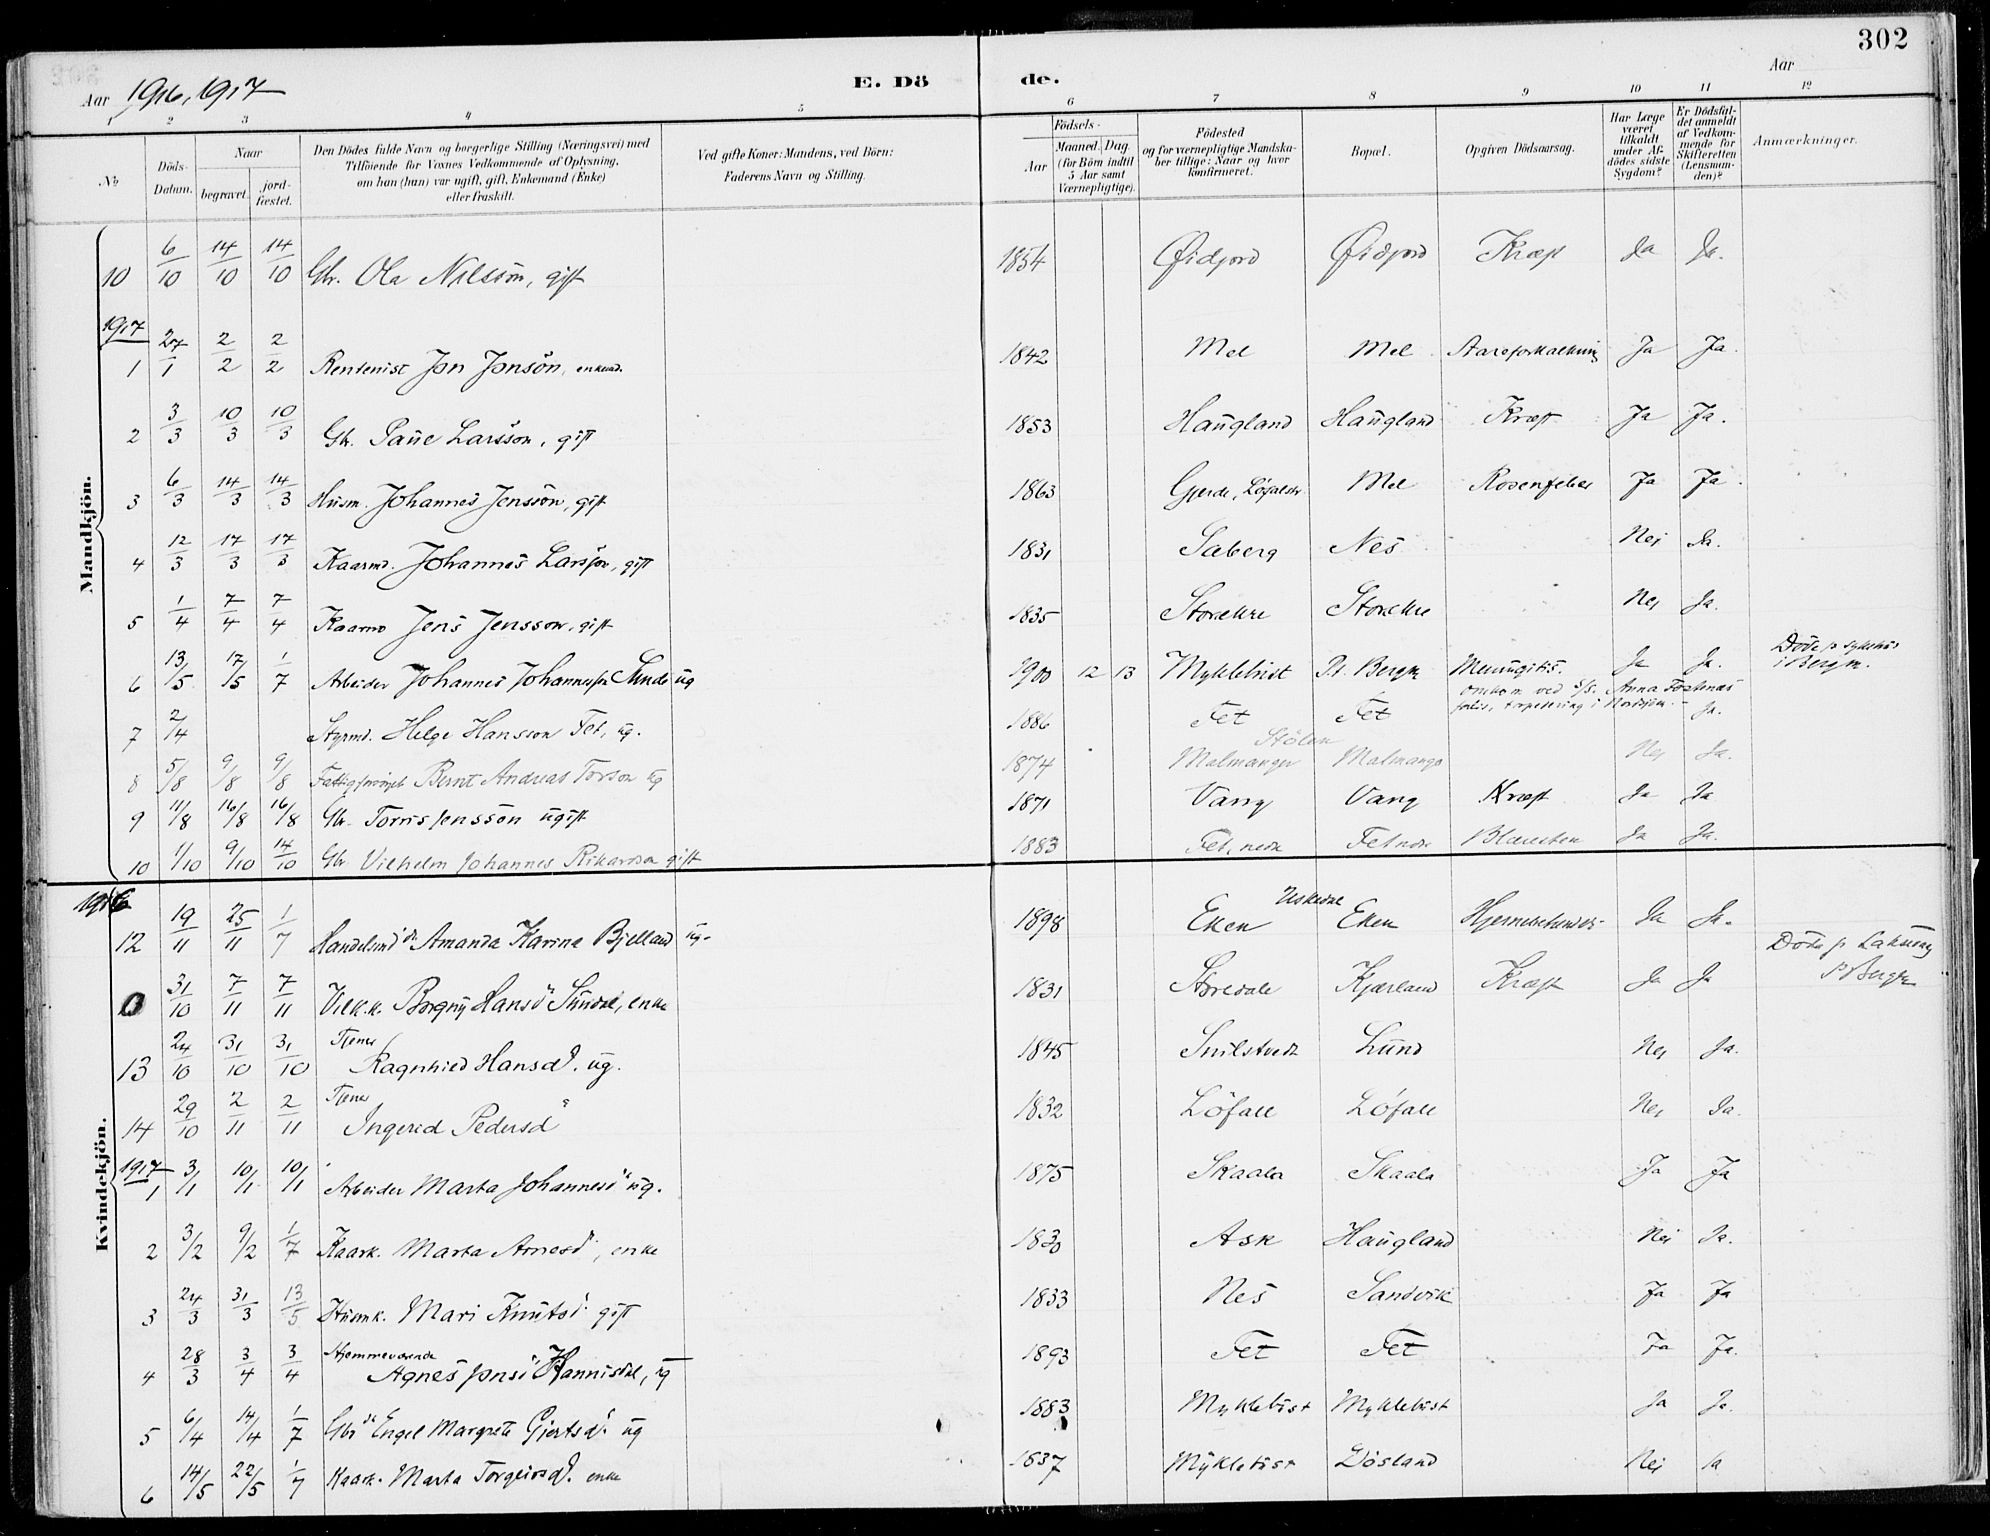 302
Aar 1916, 1917
E. Dö de.
Aar
1 2 3 4 5 6 7 8 9 10 11 12
No
Döds-Datum.
Naar
begravet.
jord-fæstet.
Den Dödes fulde Navn og borgerlige Stilling (Næringsvei) med Tilföiende for Voxnes Vedkommende af Oplysning, om han (hun) var ugift, gift, Enkemand (Enke) eller fraskilt.
Ved gifte Koner: Mandens, ved Börn: Faderens Navn og Stilling.
Födsels-
Aar
Maaned. Dag.
(for Börn indtil 5 Aar samt Værnepligtige).
Födested og for værnepligtige Mandskaber tillige: Naar og hvor konfirmeret.
Bopæl.
Opgiven Dödsaarsag.
Har Læge været tilkaldt under Afdödes sidste Sygdom?
Er Dödsfaldet anmeldt af Vedkommende for Skifteretten (Lensmanden)?
Anmærkninger.
Mandkjön.
10 6/10 14/10 14/10 Gbr. Ola Nilsson, gift 1854 Øidfjord Øidfjord Kræft Ja Ja.
1917
1 27/1 2/2 2/2 Rentenist Jon Jonson, enkmd. 1842 Mel Mel Aareforkalkning Ja Ja.
2 3/3 10/3 10/3 Gbr. Paue Larsson, gift 1853 Haugland Haugland Kræft Ja Ja.
3 6/3 14/3 14/3 Husm. Johannes Jensson, gift 1863 Gjerde, Mel Rosenfeber Ja Ja
4 12/3 17/3 17/3 Kaarmd. Johannes Larsson, gift 1831 Sæberg Nes Nei Ja.
5 1/4 7/4 7/4 Kaarmd Jens Jensson, gift 1835 Storekre Storekre Nei Ja.
6 13/5 17/5 1/7 Arbeider Johannes Johannessen Sunde ug 1900 12 13 Myklebust Bergen Meningitis. Ja Ja. Döde p. sykehus i Bergen.
7 2/4 Styrmd. Helge Hansson Fet, ug. 1886 Fet Fet Omkom ved S/S. Anna Fostenæs forlis, torpedering i Nordsjøen. - Ja.
8 5/8 9/8 9/8 Bernt Andreas Torson ug 1874 Malmanger Stölen Malmanger Nei Ja.
9 11/8 16/8 16/8 Gbr. Torris Jensson ugift 1871 Vang Vang Kræft Ja Ja
10 1/10 9/10 14/10 Gbr Vilhelm Johannes Rikardson gift 1883 Fet, nedr Fet nedr Blæresten Ja Ja.
Kvindekjön.
1916
12 19/11 25/11 1/7 Amanda Karina Bjelland ug. 1898 Eken Uskedal Eken Ja Ja. Döde p. Laksevaag p. Bergen
31/10 7/11 7/11 Borgny Hansd. Sundal, enke 1831 Storedale Kjærland Kræft Ja Ja
13 24/10 31/10 31/10 Tjener Ragnhild Hansd. ug. 1845 Snilstveit Lund Nei Ja.
14 29/10 2/11 2/11 Tjener Ingerid Pedersd 1832 Löfall Löfall Nei Ja.
1917
1 3/1 10/1 10/1 Arbeider Marta Johannesd. ug. 1875 Skaala Skaala Ja Ja
2 3/2 9/2 1/7 Kaark. Marta Arnesd., enke 1830 Ask Haugland Nei Ja.
3 24/3 31/3 13/5 Husmk. Mari Knutsd. gift 1833 Nes Sandvik Ja Ja
4 28/3 3/4 3/4 Hjemmeværende Agnes Jonsd Hannisdal, ug 1893 Fet Fet Ja Ja.
5 6/4 14/4 1/7 Gbr dr Engel Margrete Gjertsd. ug 1883 Myklebust Myklebust Ja Ja.
6 14/5 22/5 1/7 Kaark. Marta Torgeirsd. enke 1837 Myklebust Døsland Nei Ja